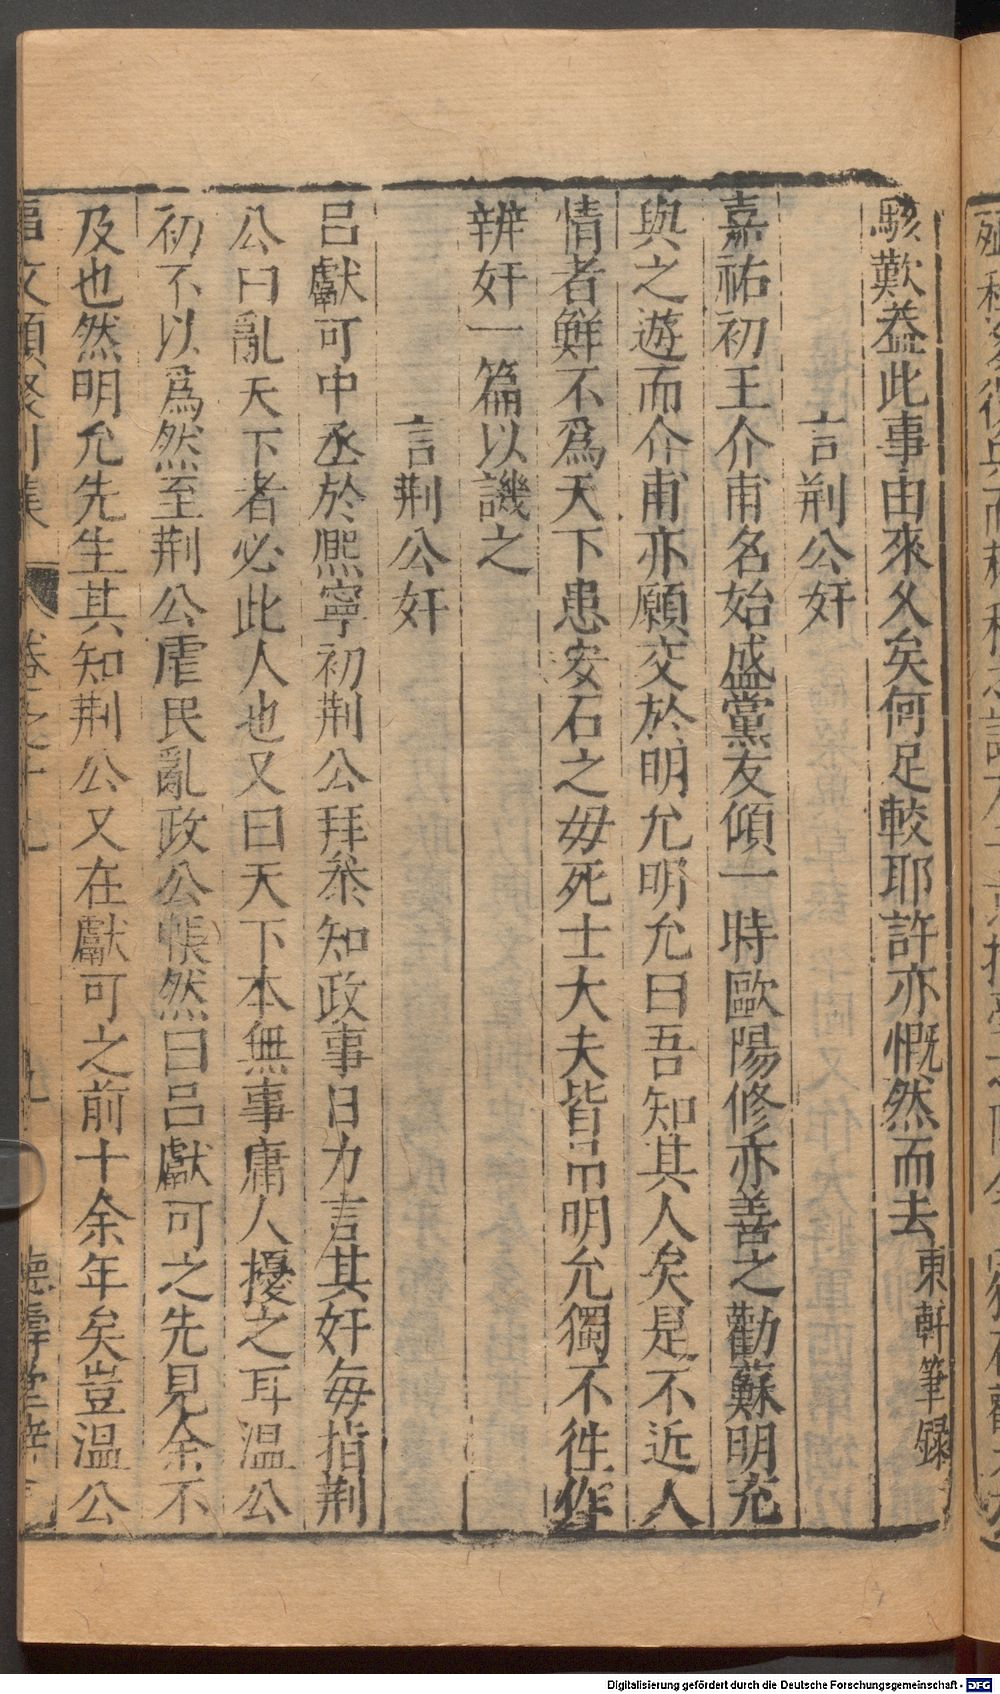 駭歎葢此事由來久矣何足較耶許亦慨然而去東軒筆録
言荆公奸
嘉祐初王介甫名始盛黨友傾一時歐陽修亦善之勸蘇明充
與之遊而介甫亦願交於明允明允曰吾知其人矣是不近人
情者鮮不爲天下患安石之毋死士大夫皆吊明允獨不徃作
辨奸一篇以譏之
言荆公奸
吕獻可中丞於熈寧初荆公拜叅知政事日力言其奸每指荆
公曰亂天下者必此人也又曰天下本無事庸人擾之耳温公
初不以爲然至荆公虐民亂政公悵然曰吕獻可之先見余不
及也然明允先生其知荆公又在獻可之前十余年矣豈温公
文類聚 集 卷之十九 九 德壽堂梓
Digitalisierung gefördert durch die Deutsche Forschungsgemeinschaft - DFG